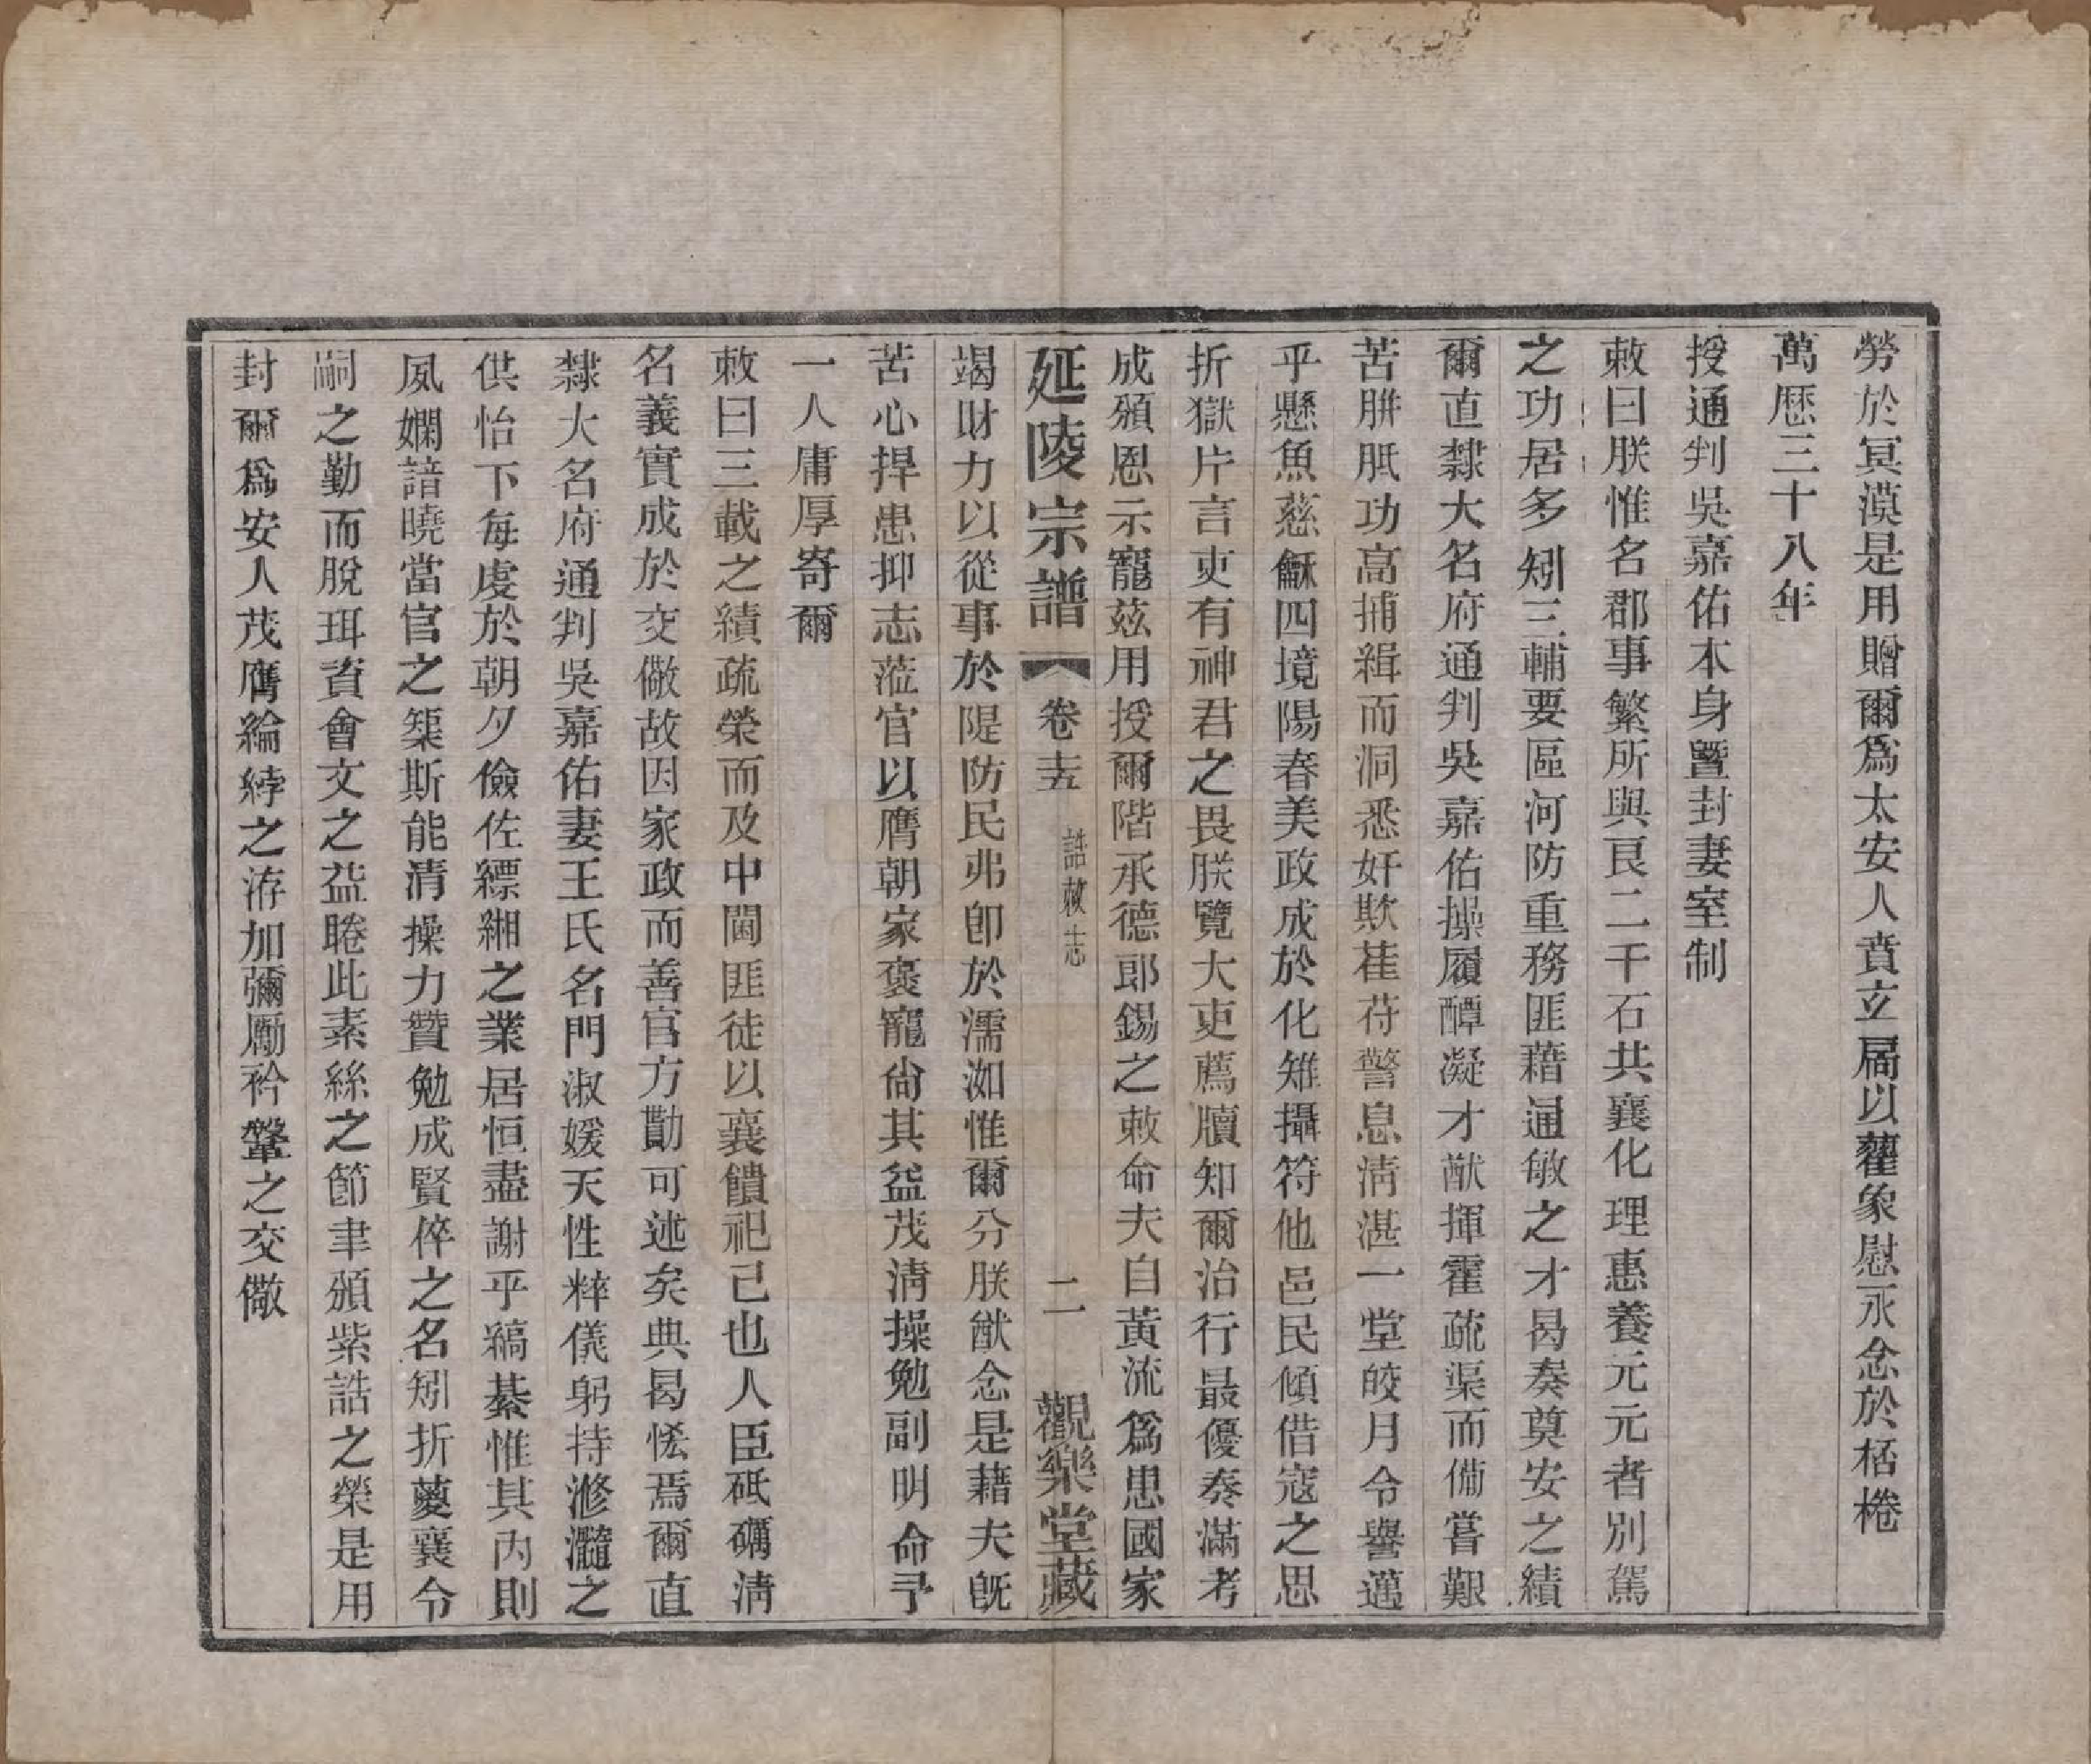 勞於冥漠是用贈爾爲太安人賁立扄以藋象慰永念於桮棬
萬厯三十八年
授通判吳嘉佑本身曁封妻室制
敕曰朕惟名郡事繁所與良二千石共襄化理惠養元元者別駕
之功居多矧三輔要區河防重務匪藉通敏之才曷奏奠安之績
爾直隸大名府通判吳嘉佑操履醰凝才猷揮霍疏渠而備嘗艱
苦胼胝功高捕緝而洞悉奸欺萑苻警息淸湛一堂皎月令譽邁
乎懸魚慈龢四境陽春美政成於化雉攝符他邑民傾借寇之思
折獄片言吏有神君之畏朕覽大吏薦牘知爾治行最優奏滿考
成頒恩示寵茲用授爾階承德郎錫之敕命夫自黃流爲患國家
延陵宗譜 卷十五 誥敕志 二 觀樂堂藏
竭財力以從事於隄防民弗卽於濡洳惟爾分朕猷念是藉夫旣
苦心捍患抑志蒞官以膺朝家褒寵尙其益茂淸操勉副明命予
一人庸厚寄爾
敕曰三載之績疏榮而及中閫匪徒以襄饋祀己也人臣砥礪淸
名義實成於交儆故因家政而善官方勩可述矣典曷恡焉爾直
隸大名府通判吳嘉佑妻王氏名門淑媛天性粹儀躬持滫瀡之
供怡下每虔於朝夕儉佐縹緗之業居恒盡謝乎縞綦惟其內則
夙嫻諳曉當官之榘斯能清操力贊勉成賢倅之名矧折蔓襄令
嗣之勤而脫珥資會文之益睠此素絲之節聿頒紫誥之榮是用
封爾爲安人茂膺綸綍之洊加彌勵衿鞶之交儆